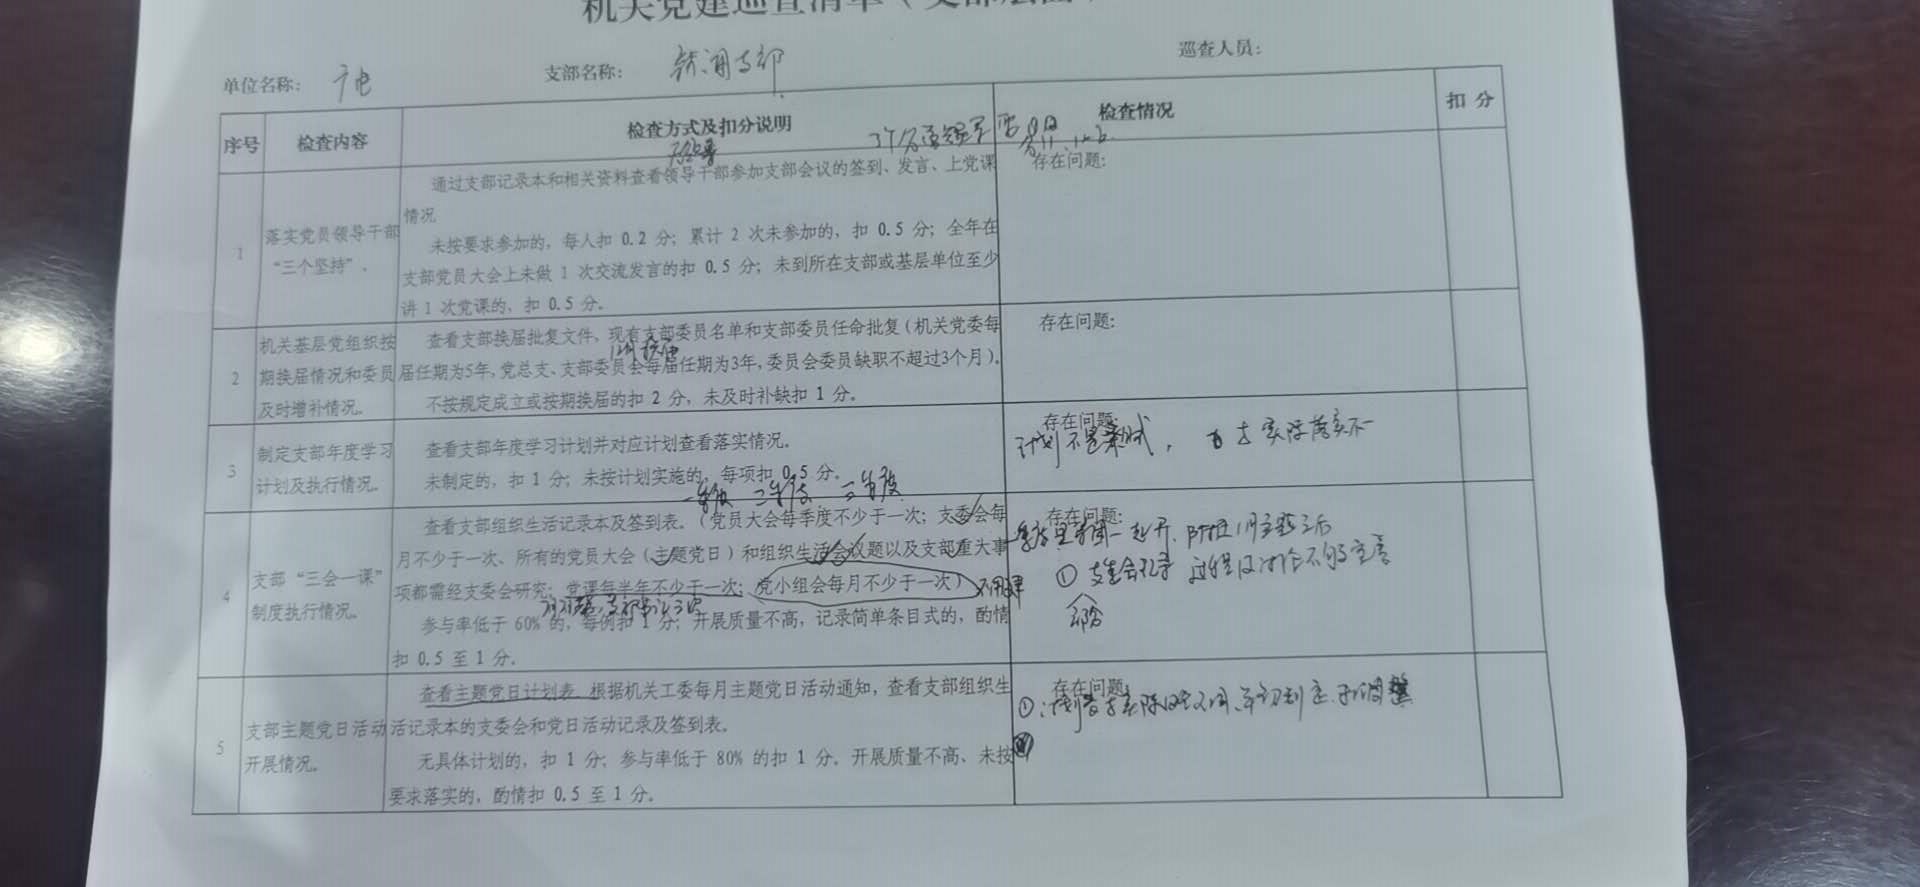 机关党建巡查清单（支部层面）
单位名称： 广电 支部名称： 支部 巡查人员：
序号 检查内容 检查方式及扣分说明 检查情况 扣 分
1 落实党员领导干部“三个坚持”。
通过支部记录本和相关资料查看领导干部参加支部会议的签到、发言、上党课
情况
未按要求参加的，每人扣 0.2 分；累计 2 次未参加的，扣 0.5 分；全年在
支部党员大会上未做 1 次交流发言的扣 0.5 分；未到所在支部或基层单位至少
讲 1 次党课的，扣 0.5 分。
存在问题：
2 机关基层党组织按期换届情况和委员及时增补情况。
查看支部换届批复文件，现有支部委员名单和支部委员任命批复（机关党委每
届任期为5年，党总支、支部委员会每届任期为3年，委员会委员缺职不超过3个月）。
不按规定成立或按期换届的扣 2 分，未及时补缺扣 1 分。
存在问题：
3 制定支部年度学习计划及执行情况。
查看支部年度学习计划并对应计划查看落实情况。
未制定的，扣 1 分；未按计划实施的，每项扣 0.5 分。
存在问题：
计划不是 ， 与实际落实不一
一季度 二季度 三季度
4 支部“三会一课”制度执行情况。
查看支部组织生活记录本及签到表。（党员大会每季度不少于一次；支委会每
月不少于一次、所有的党员大会（主题党日）和组织生活会议题以及支部重大事
项都需经支委会研究；党课每半年不少于一次；党小组会每月不少于一次）
参与率低于 60% 的，每例扣 1 分；开展质量不高，记录简单条目式的，酌情
扣 0.5 至 1 分。
存在问题：
① 支委会记录
5 支部主题党日活动开展情况。
查看主题党日计划表，根据机关工委每月主题党日活动通知，查看支部组织生
活记录本的支委会和党日活动记录及签到表。
无具体计划的，扣 1 分；参与率低于 80% 的扣 1 分，开展质量不高、未按
要求落实的，酌情扣 0.5 至 1 分。
存在问题：
① 计划